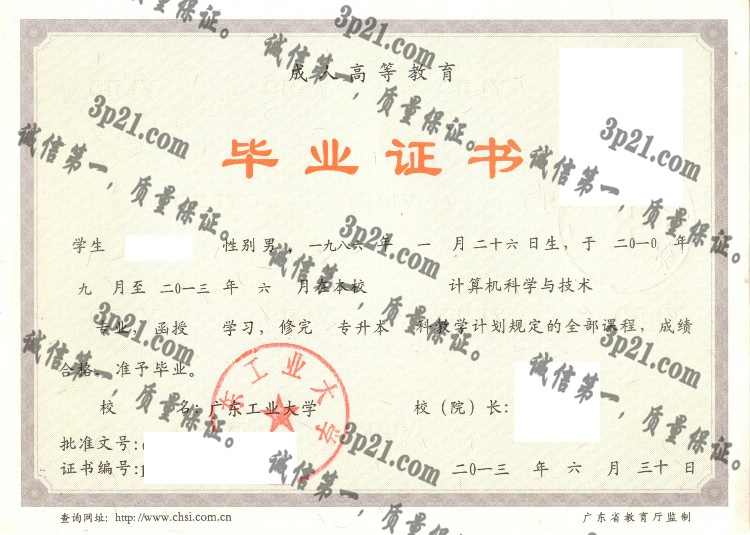 成人高等教育
毕业证书
学生 性别 男，一九八六 年 一 月 二十六 日生，于 二〇一〇 年
九 月至 二〇一三 年 六 月在本校 计算机科学与技术
专业，函授 学习，修完 专升本 科教学计划规定的全部课程，成绩
合格，准予毕业。
校 名：广东工业大学 校（院）长：
广东工业大学
批准文号：
证书编号：
二〇一三 年 六 月 三十 日
查询网址：http://www.chsi.com.cn 广东省教育厅监制
3p21.com
诚信第一，质量保证。
3p21.com
诚信第一，质量保证。
3p21.com
诚信第一，质量保证。
3p21.com
诚信第一，质量保证。
3p21.com
诚信第一，质量保证。
3p21.com
诚信第一，质量保证。
3p21.com
诚信第一，质量保证。
质量保证。